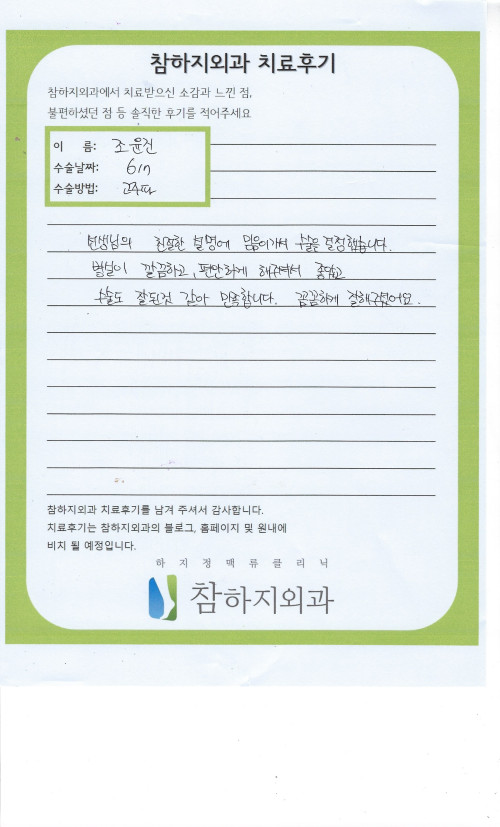 참하지외과 치료후기
참하지외과에서 치료받으신 소감과 느낀 점,
불편하셨던 점 등 솔직한 후기를 적어주세요
이 름: 조윤진
수술날짜: 6/7
수술방법: 고주파
선생님의 친절한 설명에 믿음이가서 수술을 결정했습니다.
병실이 깔끔하고, 편안하게 해주셔서 좋았고
수술도 잘된것 같아 만족합니다. 꼼꼼하게 잘해주셨어요.
참하지외과 치료후기를 남겨 주셔서 감사합니다.
치료후기는 참하지외과의 블로그, 홈페이지 및 원내에
비치 될 예정입니다.
하지정맥류클리닉
참하지외과